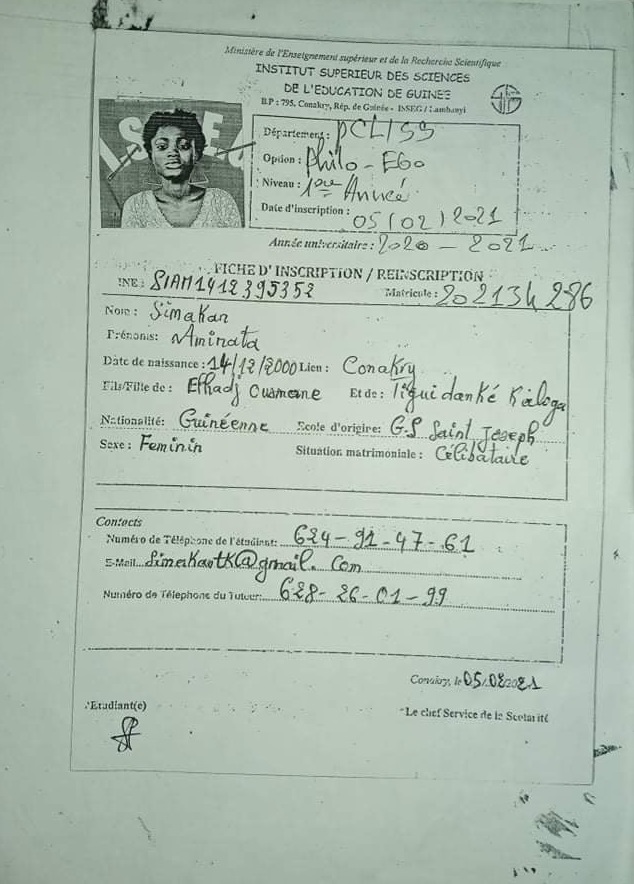 Ministère de l'Enseignement supérieur et de la Recherche Scientifique
INSTITUT SUPERIEUR DES SCIENCES
DE L'EDUCATION DE GUINEE
B.P : 795, Conakry, Rép. de Guinée - ISSEG / Lambanyi
Département : DCLISS
Option : Philo - Ebo
Niveau : 1ère Année
Date d'inscription : 05/02/2021
Année universitaire : 2020 - 2021
FICHE D'INSCRIPTION / REINSCRIPTION
INE : SIAM1412395352 Matricule : 202134286
Nom : Simakan
Prénoms : Aminata
Date de naissance : 14/12/2000 Lieu : Conakry
Fils/Fille de : Elhadj Ousmane Et de : Tiguidanké
Nationalité : Guinéenne Ecole d'origine : G.S Saint Joseph
Sexe : Feminin Situation matrimoniale : Célibataire
Contacts
Numéro de Téléphone de l'étudiant : 624-91-47-61
E-Mail... Simakantk@gmail.com
Numéro de Téléphone du Tuteur : 628-26-01-99
Conakry, le 05/02/2021
L'Etudiant(e)
Le chef Service de la Scolarité